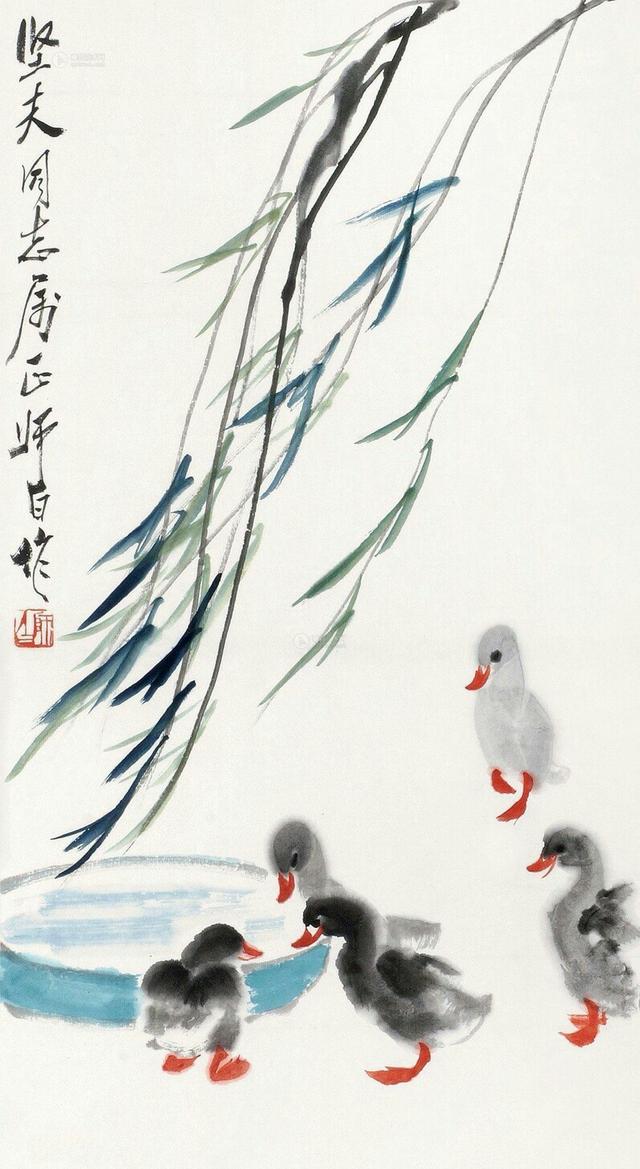 坚夫同志属正师白作